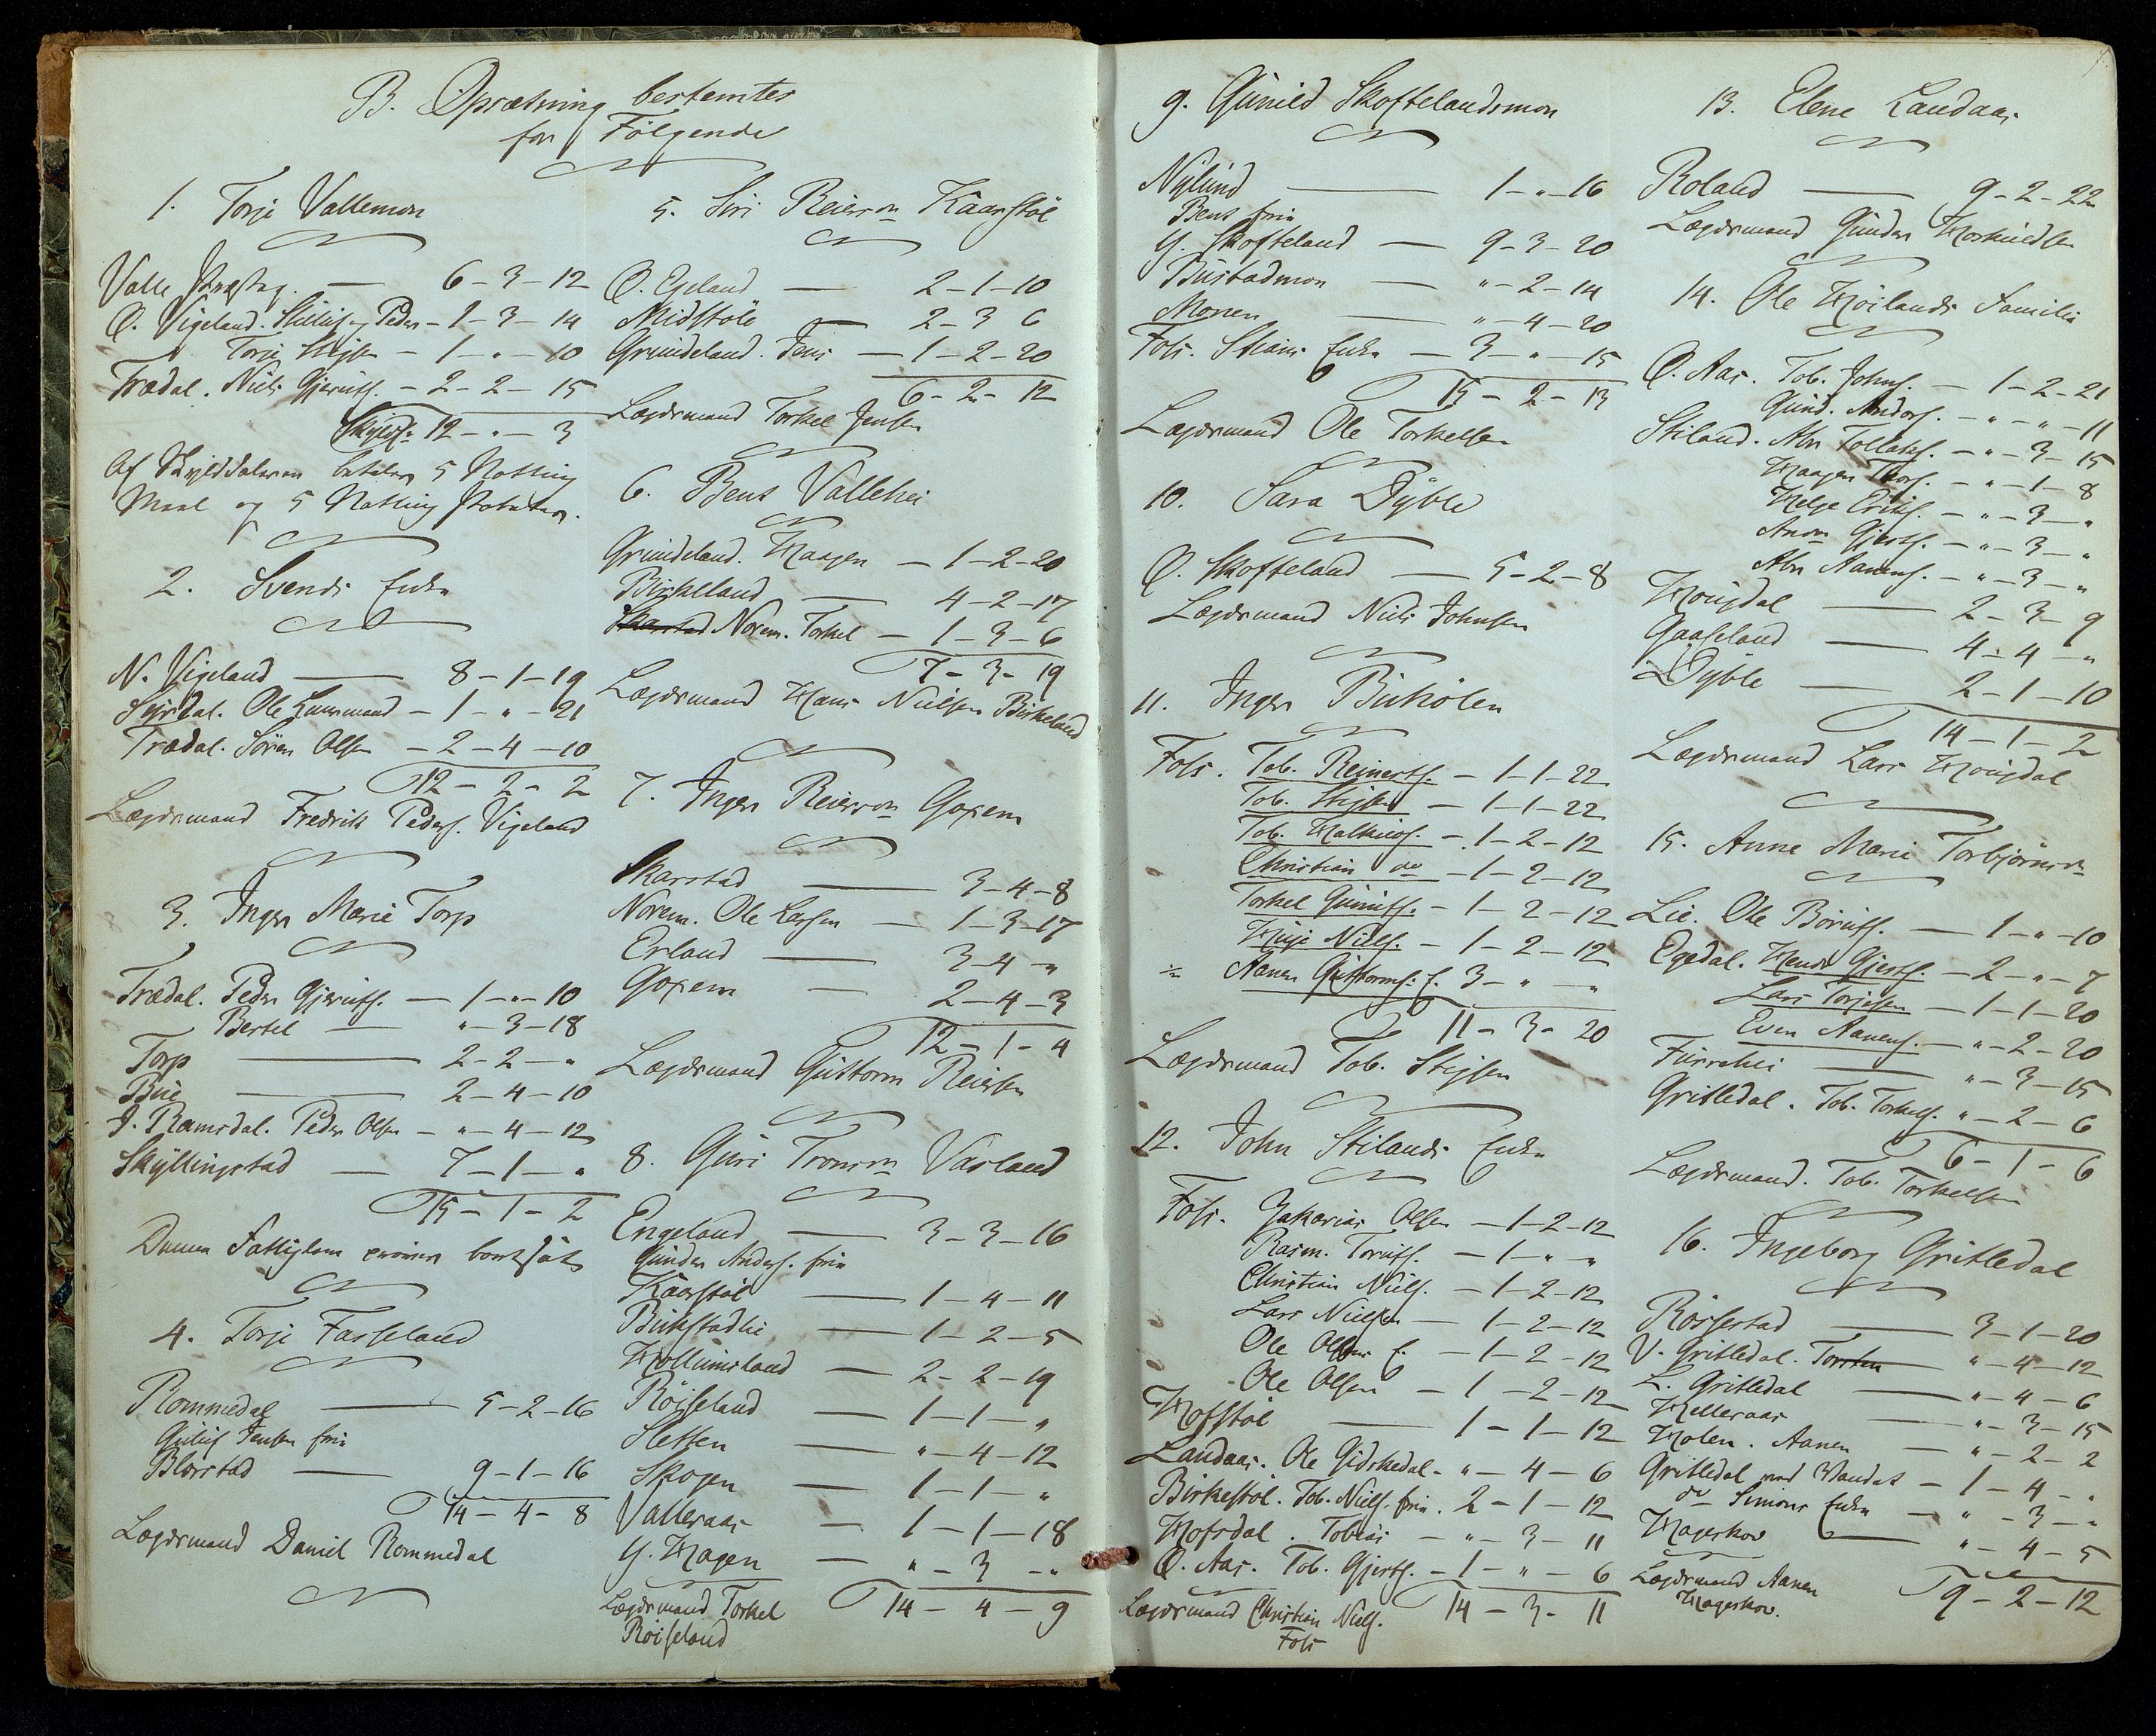 B. Oprætning bestemtes
for Følgende
1. Torje Vallemon
Valle Præsteg. — 6-3-12
Ø. Vigeland. Peder - 1-3-14
Torje Stigsen - 1-"-10
Trædal. Niels Gjerulds. - 2-2-15
Skyldd. 12-"-3
Af Skylddaleren betales 5 Notting
Maal og 5 Notting Poteter.
2. Svends Enke
N. Vigeland — 8-1-19
Syrdal. Ole Laursmand - 1-"-21
Trædal. Sören Olsen - 2-4-10
12-2-2
Lægdsmand Fredrik Peders. Vigeland
3. Inger Marie Torp
Trædal. Peder Gjeruldss. — 1-"-10
Bertel — "-3-18
Torp — 2-2-"
Bue — 2-4-10
I. Ramsdal. Peder Olsen - "-4-12
Skyllingstad — 7-1-"
15-1-2
Denne Fattiglem bortsat
4. Torje Fasseland
Rommedal — 5-2-16
Guluf Jensen frie
Blørstad — 9-1-16
14-4-8
Lægdsmand Daniel Rommedal
5. Siri Reiersen Kaarstöl
Ø. Egeland — 2-1-10
Midstöle — 2-3 6
Grundeland. Jens — 1-2-20
6-2-12
Lægdsmand Torkel Jensen
6. Bent Vallehei
Grundeland. Haagen — 1-2-20
Birkeland — 4-2-17
Skarstad Norem. Torkel — 1-3-6
7-3-19
Lægdsmand Hans Nielsen Birkeland
7. Inger Reiersen Goxem
Skarstad — 3-4-8
Norem. Ole Larsen — 1-3-17
Erland — 3-4-"
Goxem — 2-4-3
12-1-4
Lægdsmand Guttorm Reiersen
8. Guri Tromsen Vasland
Engeland — 3-3-16
Gunder Anders. frie
Kaarstöl — 1-4-11
Birkstadlie — 1-2-5
Hollumsland — 2-2-19
Röiseland — 1-1-"
Sletten — "-4-12
Skogen — 1-1-"
Valleraas — 1-1-18
Y. Hagen — "-3-"
14-4-9
Lægdsmand Torkel
Röiseland
9. Gunild Skoftelandsmon
Nylund — 1-"-16
Bent frie
Y. Skofteland — 9-3-20
Bustadmon — "-2-14
Monen — "-4-20
Foss. Stians Enke - 3-"-15
15-2-13
Lægdsmand Ole Torkelsen
10. Sara Dyble
Ø. Skofteland — 5-2-8
Lægdsmand Niels Johnsen
11. Inger Buholen
Foss. Tob. Reinerts. - 1-1-22
Tob. Stigsen - 1-1-22
Tob. Halkiods. - 1-2-12
Christian do - 1-2-12
Torkel Gunulfs. - 1-2-12
Huje Niels. - 1-2-12
Aanen Guttorms. E. 3-"-"
11-3-20
Lægdsmand Tob. Stigsen
12. John Stilands Enke
Foss. Zakarias Olsen - 1-2-12
Rasm. Torulfs. - 1-"-"
Christian Niels. - 1-2-12
Lars Nielsen - 1-2-12
Ole Olsens E. - 1-2-12
Ole Olsen - 1-2-12
Hofstöl — 1-1-12
Landaas. Ole Gidskedal - "-4-6
Birkestöl. Tob. Niels. frie. 2-1-12
Hofsdal. Tobias - "-3-11
Ø. Aas. Tob. Gjerts. - 1-"-6
14-3-11
Lægdsmand Christian Niels.
Foss
13. Elene Landaas
Roland — 9-2-22
Lægdsmand Gunder Torkildsen
14. Ole Höilands Familie
Ø. Aas. Tob. Johns. — 1-2-21
Gund. Anders. - "-"-11
Stiland. Abr Tollaks. - "-3-15
Haagen Thors. - "-1-8
Helge Eriks. - "-3-"
Anon Gjerts. - "-3-"
Abr Aanens. - "-3-"
Hougdal — 2-3-9
Gaaseland — 4-4-"
Dyble — 2-1-10
14-1-2
Lægdsmand Lars Hougdal
15. Anne Marie Torbjörnsen
Lie. Ole Börulfs. — 1-"-10
Egedal. Hendr Gjerts. - 2-"-7
Lars Torjesen - 1-1-20
Even Aanens. - "-2-20
Furrehei — "-3-15
Gritledal. Tob. Torkels. "-2-6
6-1-6
Lægdsmand. Tob. Torkelsen
16. Ingeborg Gritledal
Rössestad — 3-1-20
V. Gritledal. Torsten "-4-12
L. Gritledal — "-4-6
Helleraas — "-3-15
Holen. Aanen — "-2-2
Gritledal med Vandat - 1-4-"
do Simons Enke - "-3-"
Hageskov — "-4-5
9-2-12
Lægdsmand Aanen
Hageskov.